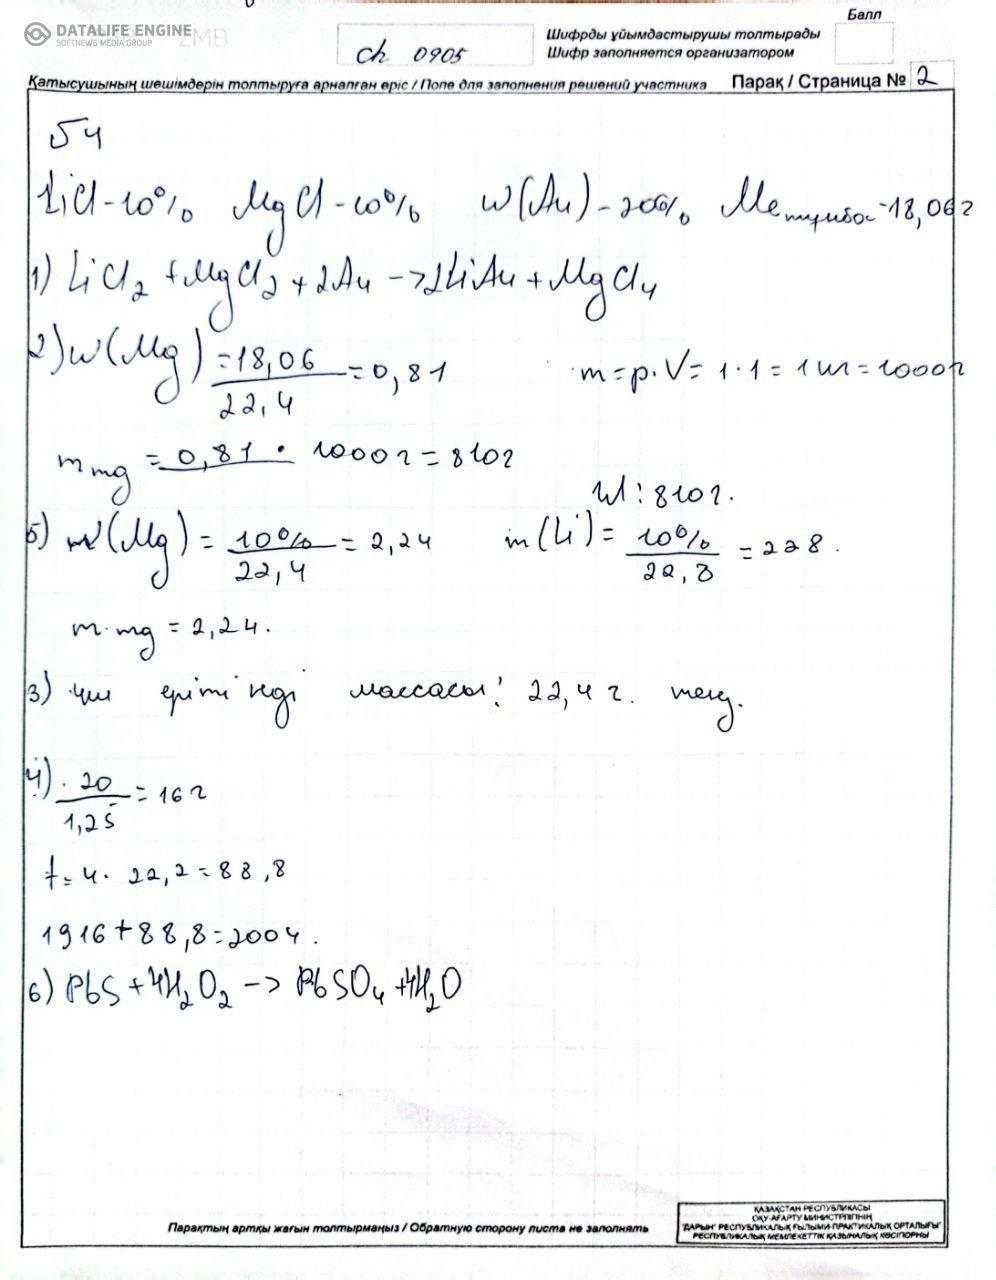 DATALIFE ENGINE
SOFTNEWS MEDIA GROUP
Балл
ch 0905
Шифрды ұйымдастырушы толтырады
Шифр заполняется организатором
Қатысушының шешімдерін толтыруға арналған өріс / Поле для заполнения решений участника
Парақ / Страница № 2
54
LiCl - 10% MgCl - 10% w(Au) - 20% Me - 18,06 г
1) LiCl2 + MgCl2 + 2Au -> 2LiAu + MgCl4
2) w(Mg) = 18,06 / 22,4 = 0,81
m = p. V = 1 · 1 = 1 = 1000г
m mg = 0,81 · 1000г = 810г
: 810г.
5) w(Mg) = 10% / 22,4 = 2,24
m(Li) = 10% / 22,8 = 228.
m · mg = 2,24.
3) ерітіндi массасы: 22,4 г. тең.
4) 20 / 1,25 = 16г
t = 4 · 22,2 = 88,8
1916 + 88,8 = 2004.
6) PbS + 4H2O2 -> PbSO4 + 4H2O
Парақтың артқы жағын толтырмаңыз / Обратную сторону листа не заполнять
ҚАЗАҚСТАН РЕСПУБЛИКАСЫ
ОҚУ-АҒАРТУ МИНИСТРЛІГІНІҢ
"ДАРЫН" РЕСПУБЛИКАЛЫҚ ҒЫЛЫМИ-ПРАКТИКАЛЫҚ ОРТАЛЫҒЫ"
РЕСПУБЛИКАЛЫҚ МЕМЛЕКЕТТІК ҚАЗЫНАЛЫҚ КӘСІПОРНЫ